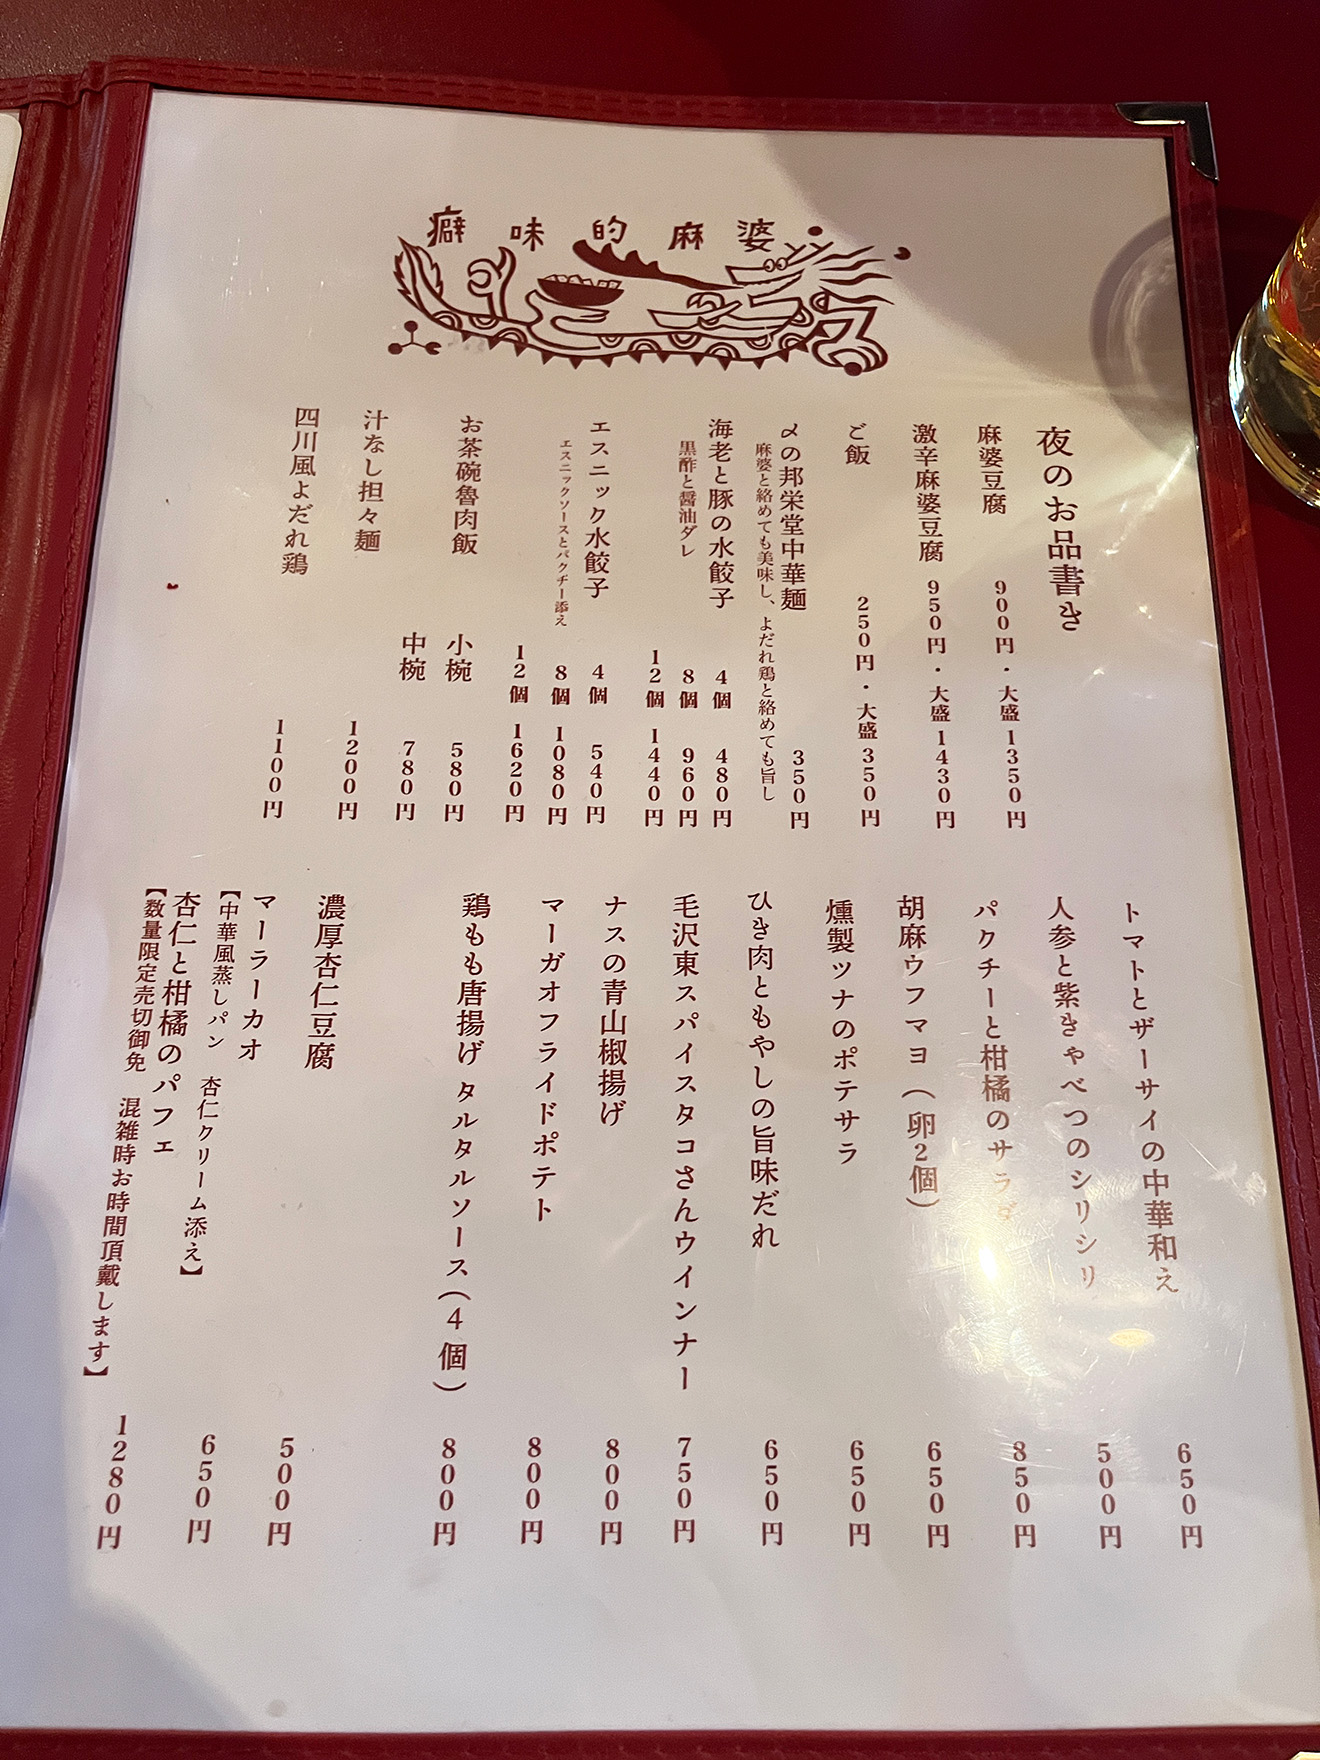 癖味的麻婆
夜のお品書き
麻婆豆腐 900円・大盛1350円
激辛麻婆豆腐 950円・大盛1430円
ご飯 250円・大盛350円
〆の邦栄堂中華麺 350円
麻婆と絡めても美味し、よだれ鶏と絡めても旨し
海老と豚の水餃子 4個 480円
黒酢と醤油ダレ 8個 960円
12個 1440円
エスニック水餃子 4個 540円
エスニックソースとパクチー添え 8個 1080円
12個 1620円
お茶碗魯肉飯 小椀 580円
中椀 780円
汁なし担々麺 1200円
四川風よだれ鶏 1100円
トマトとザーサイの中華和え 650円
人参と紫きゃべつのシリシリ 500円
パクチーと柑橘のサラダ 850円
胡麻ウフマヨ(卵2個) 650円
燻製ツナのポテサラ 650円
ひき肉ともやしの旨味だれ 650円
毛沢東スパイスタコさんウインナー 750円
ナスの青山椒揚げ 800円
マーガオフライドポテト 800円
鶏もも唐揚げ タルタルソース(4個) 800円
濃厚杏仁豆腐 500円
マーラーカオ
【中華風蒸しパン 杏仁クリーム添え】 650円
杏仁と柑橘のパフェ
【数量限定売切御免 混雑時お時間頂戴します】 1280円